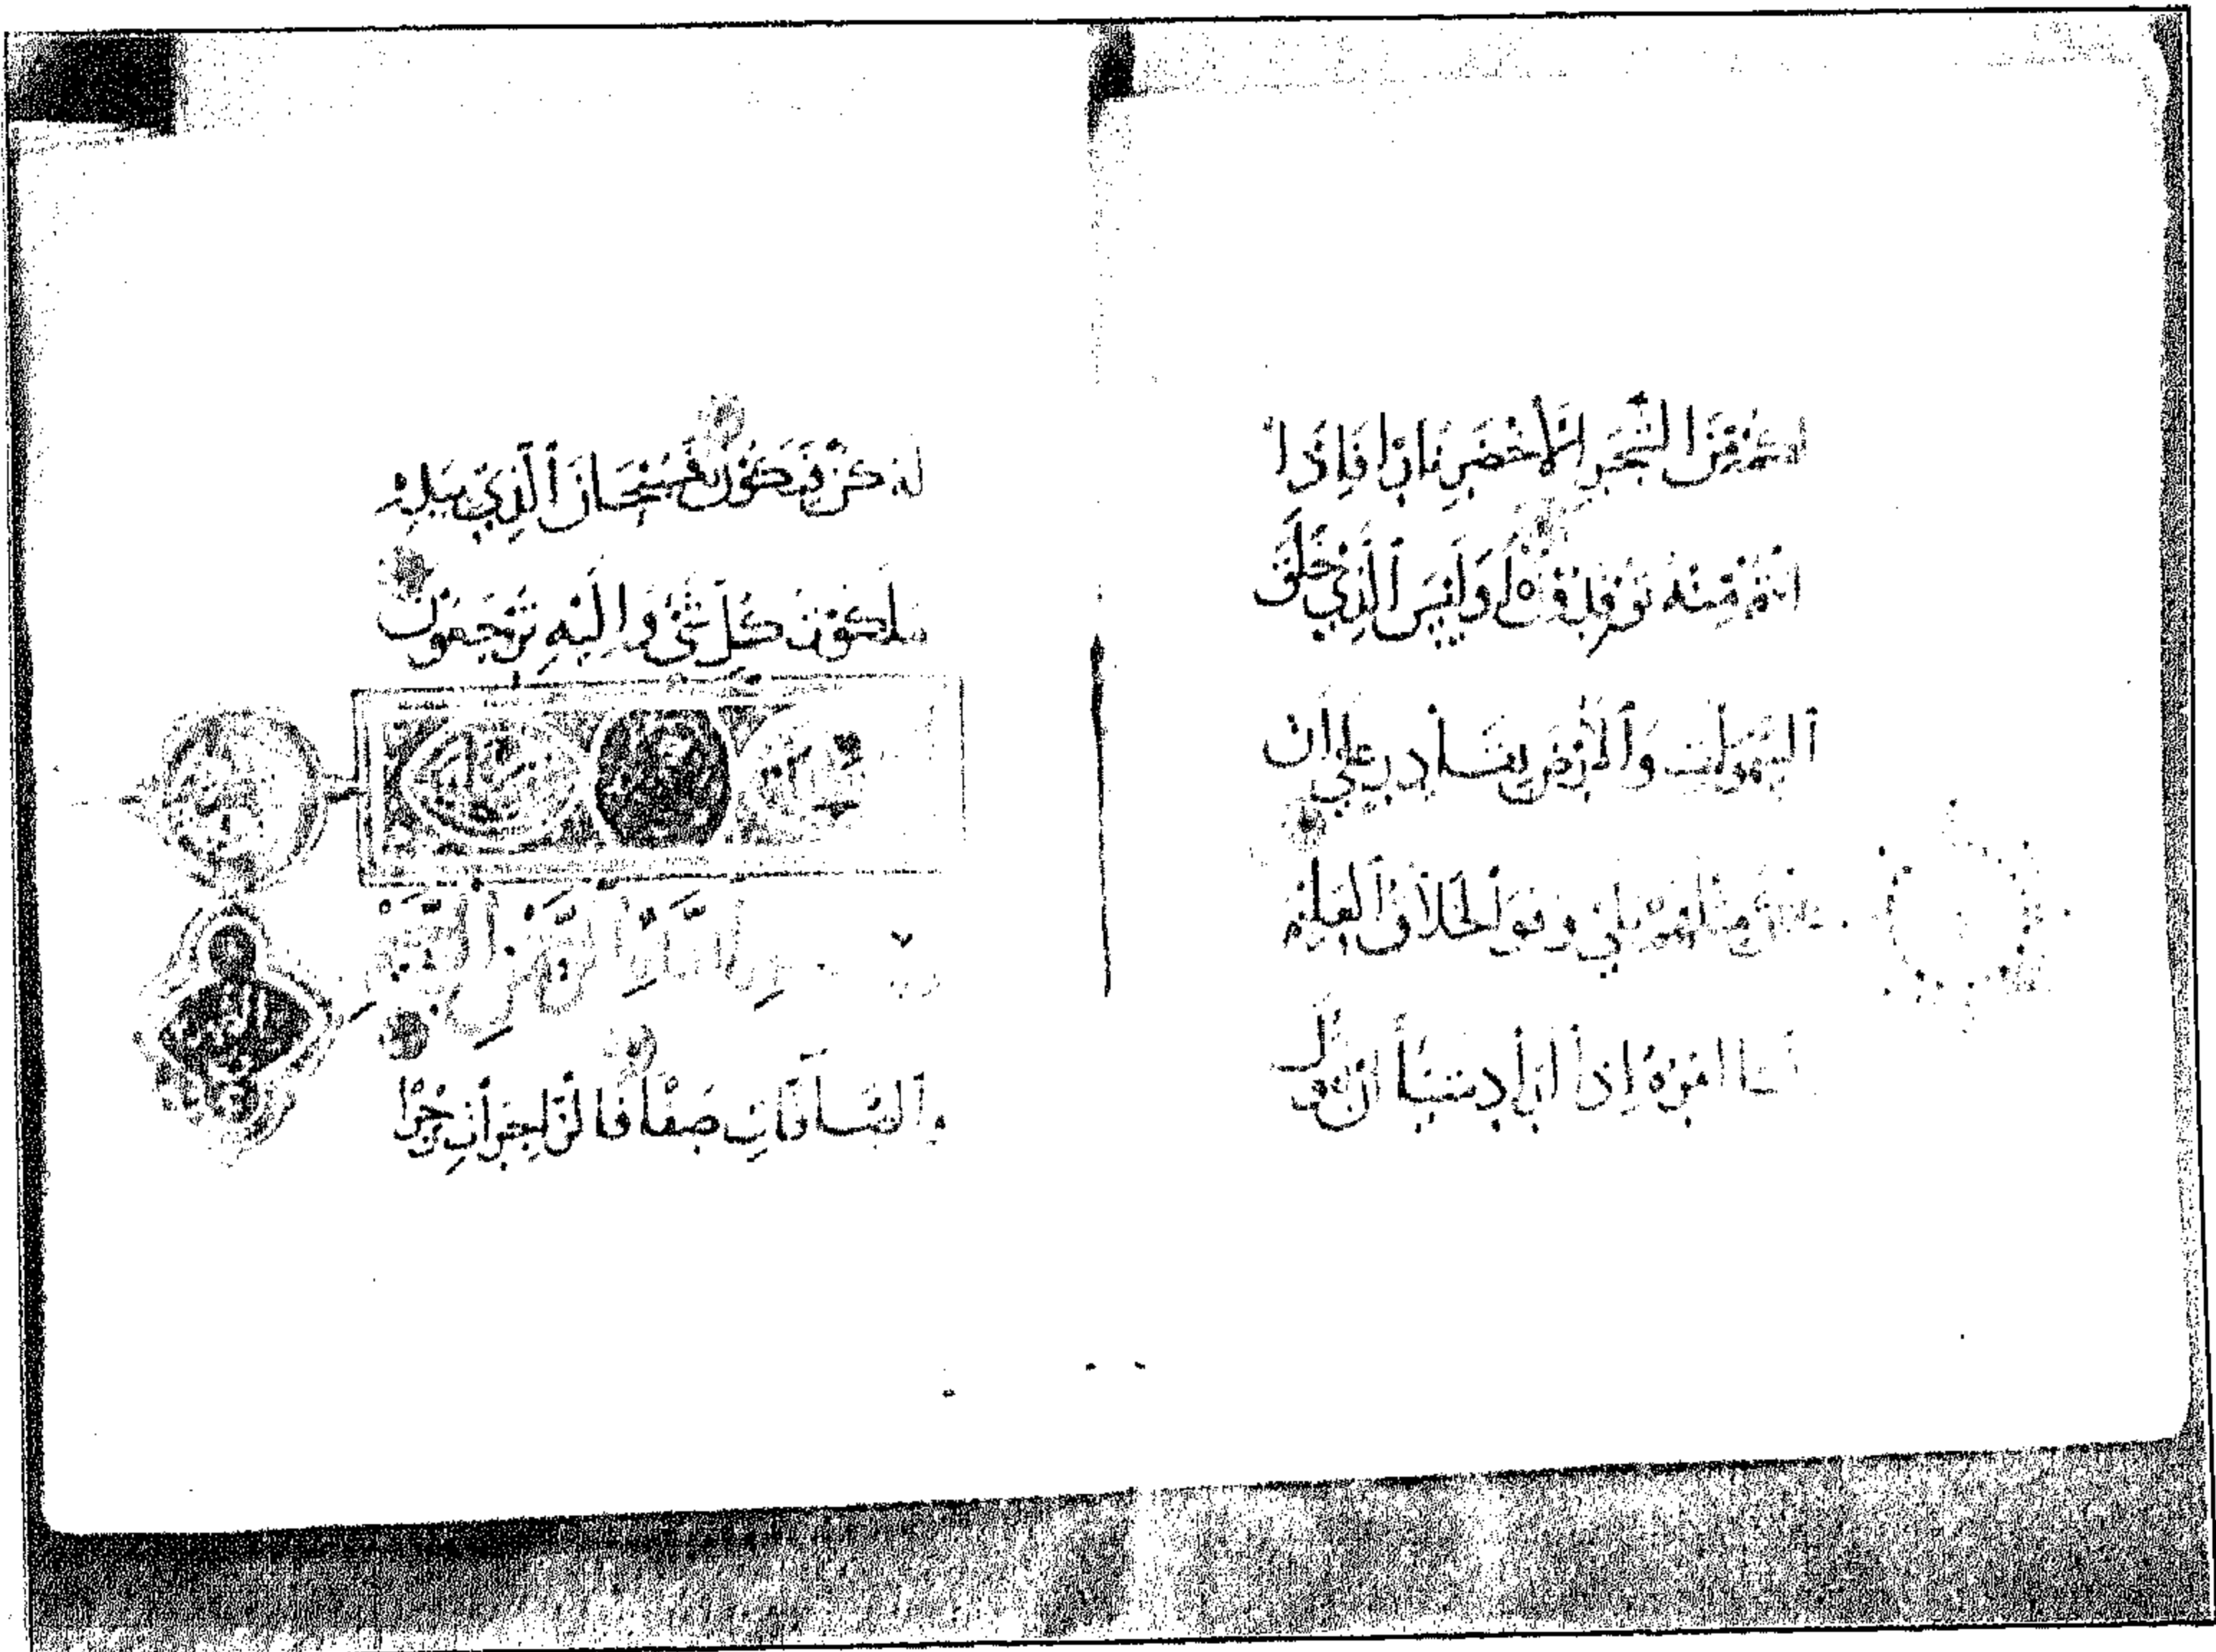 لكم من الشجر الأخضر نارا فإذا
أنتم منه توقدون أوليس الذي خلق
السموات والأرض بقادر على أن
يخلق مثلهم بلى وهو الخلاق العليم
إنما أمره إذا أراد شيئا أن يقول
له كن فيكون فسبحان الذي بيده
ملكوت كل شيء وإليه ترجعون
بسم الله الرحمن الرحيم
والصافات صفا فالزاجرات زجرا